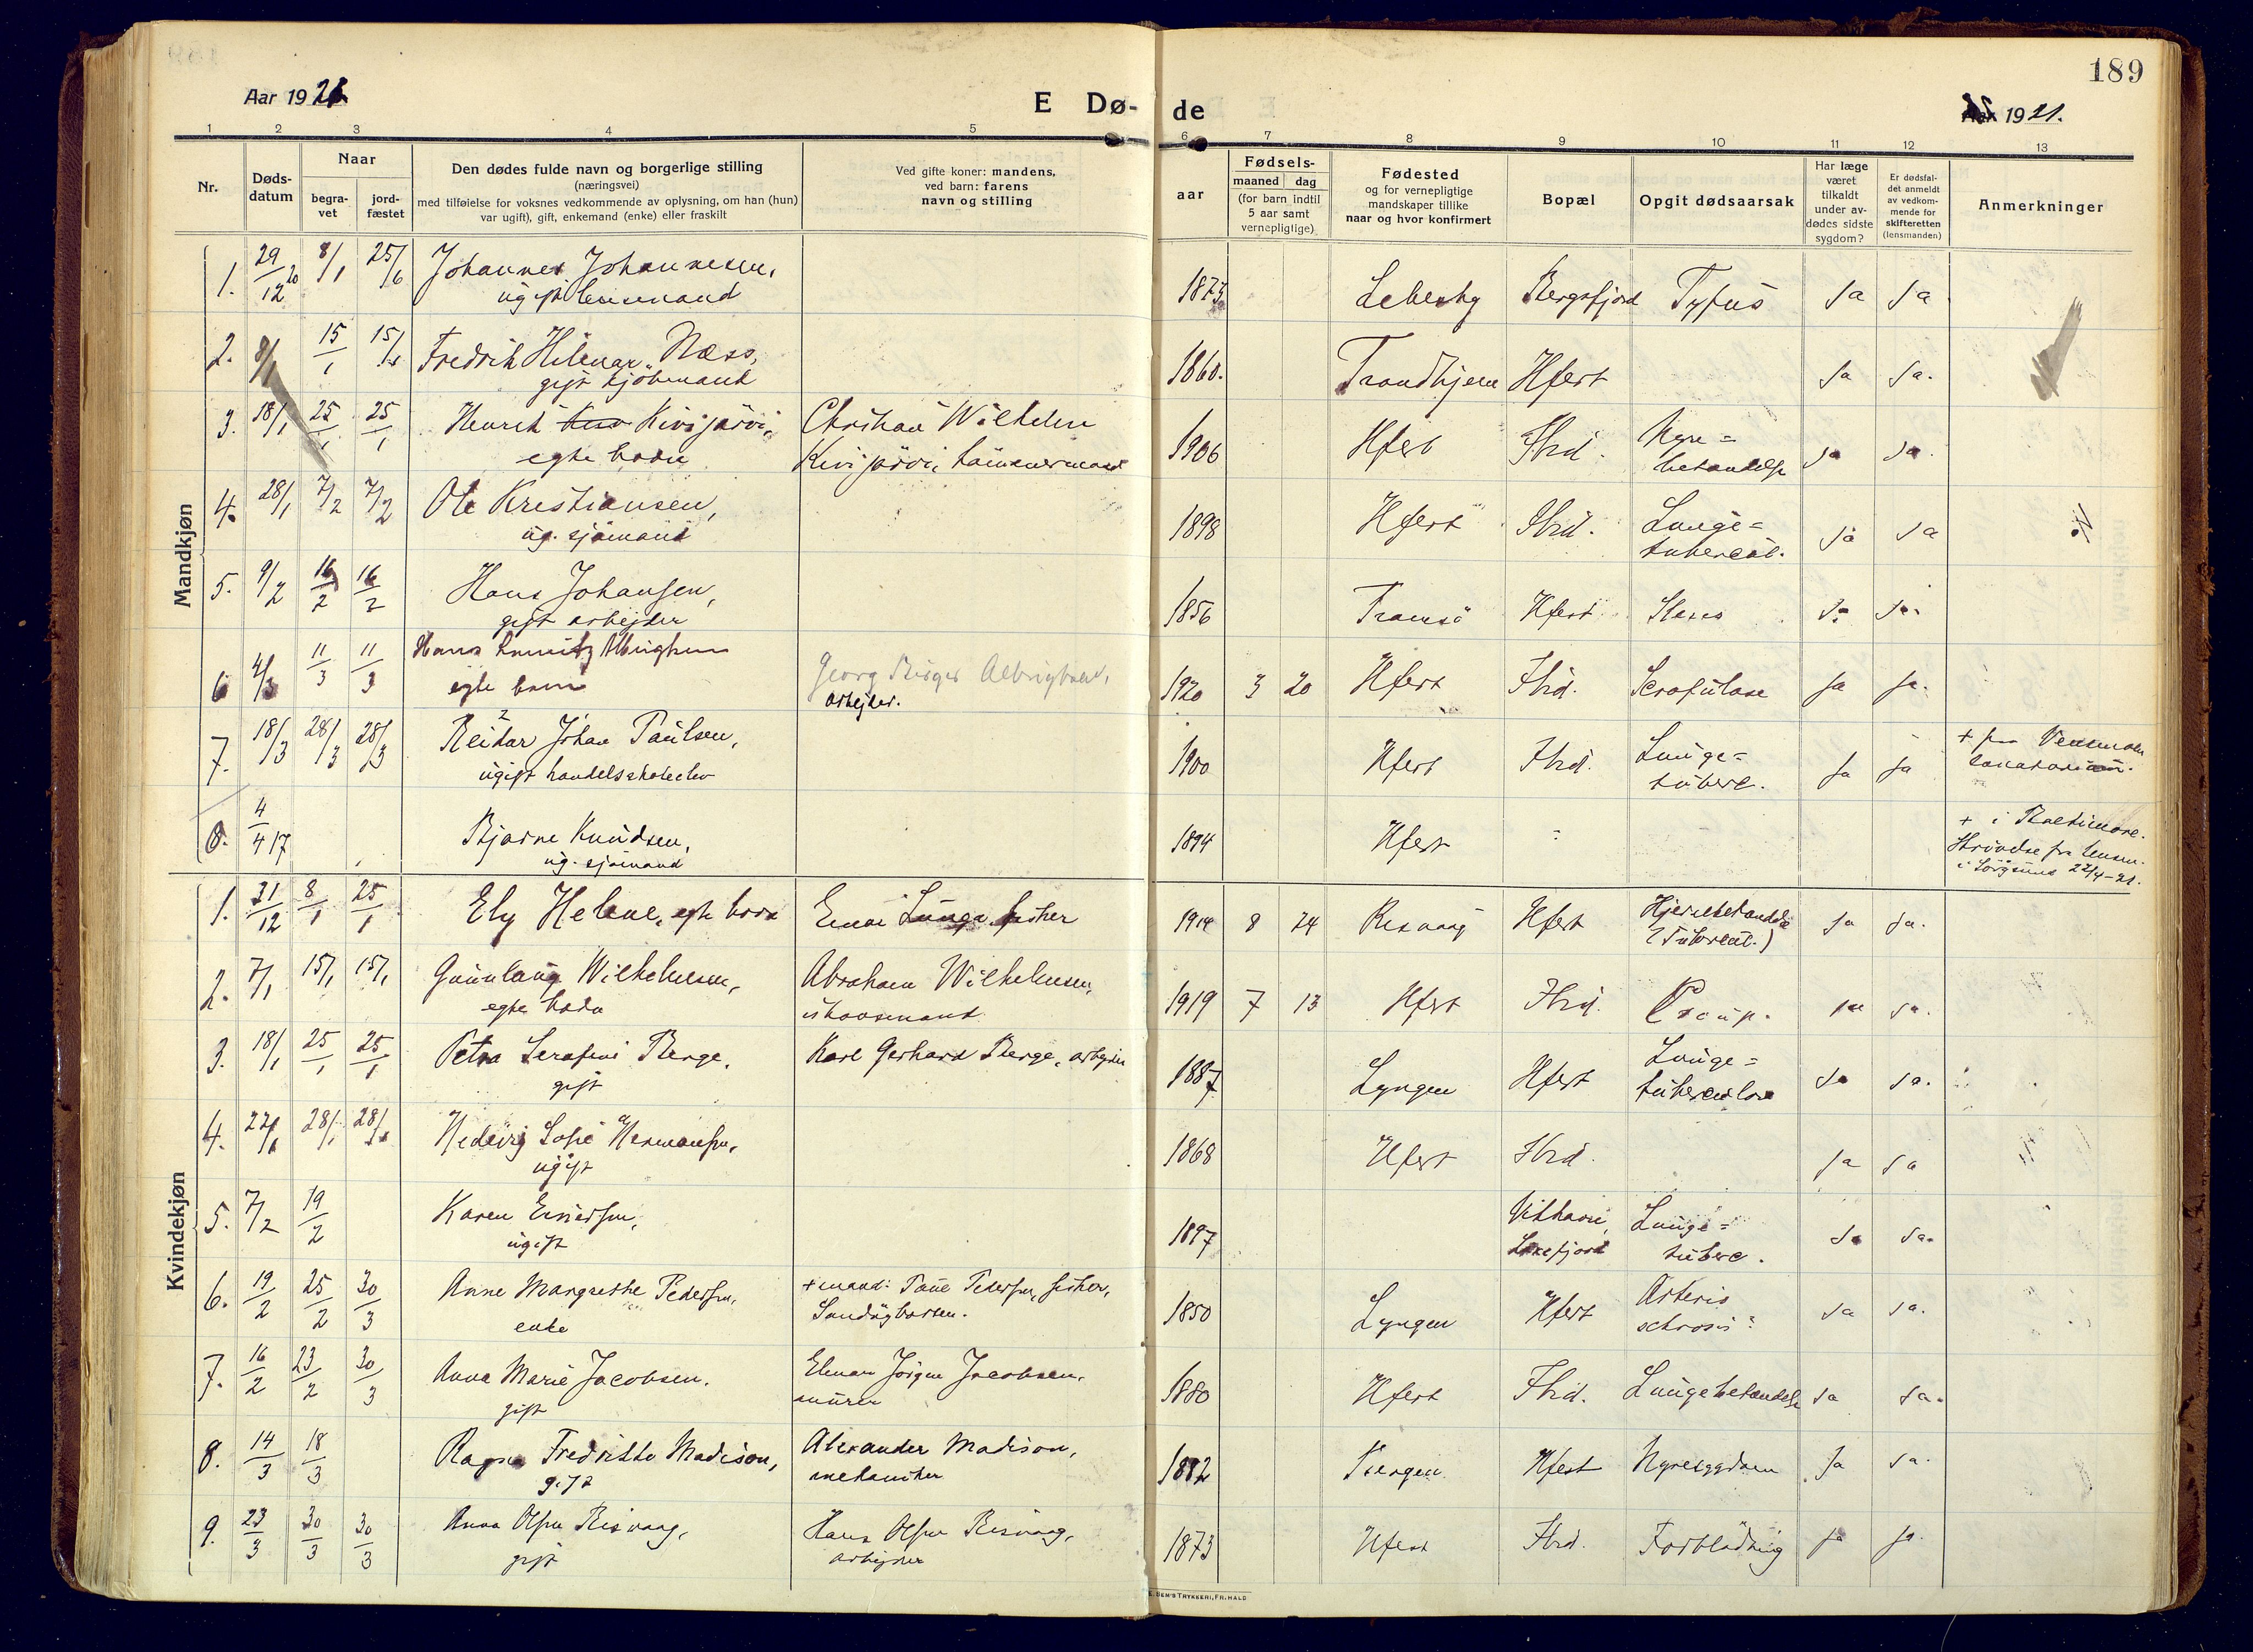 189
Aar 1921.
E Dø-
de
1921.
1 2 3 4 5
6 7 8 9 10 11 12 13
Nr.
Døds-
datum
Naar
begra-
vet
jord-
fæstet
Den dødes fulde navn og borgerlige stilling
(næringsvei)
med tilføielse for voksnes vedkommende av oplysning, om han (hun)
var ugift), gift, enkemand (enke) eller fraskilt
Ved gifte koner: mandens,
ved barn: farens
navn og stilling
aar
Fødsels-
maaned dag
(for barn indtil
5 aar samt
vernepligtige)
Fødested
og for vernepligtige
mandskaper tillike
naar og hvor konfirmert
Bopæl
Opgit dødsaarsak
Har læge
været
tilkaldt
under av-
dødes sidste
sygdom?
Er dødsfal-
det anmeldt
av vedkom-
mende for
skifteretten
(lensmanden)
Anmerkninger
Mandkjøn
1. 29/12 20 8/1 25/6 Johannes Johannesen, 1873 Lebesby Bergsfjord Tyfus Ja Ja
ugift lensmand
2. 8/1 15/1 15/1 Fredrik Hilmar Næss, 1860. Trondhjem Hfest Ja Ja.
gift kjøbmand
3. 18/1 25/1 25/1 Henrik Kivijärvi, Christian Wilhelm 1906 Hfest Ibid. Nyre=
egte barn Kivijärvi, tømmermand betændelse Ja Ja.
4. 28/1 7/2 7/2 Ole Kristiansen, 1898 Hfest Ibid. Lunge=
ug. sjømand tubercul. Ja Ja
5. 9/2 16/2 16/2 Hans Johansen, 1856 Tromsö Hfest Ja Ja.
gift arbejder
6 4/3 11/3 11/3 Hans Albrigtsen Georg Birger Albrigtsen, 1920 3 20 Hfest Ibid. Scrofulose Ja Ja.
egte barn arbejder.
7. 18/3 28/3 28/3 Reidar Johan Paulsen, 1900 Hfest Ibid. Lunge= Ja Ja
ugift handelsskoleelev tuberc.
+ paa Vensmoen
sanatorium.
8. 4/4 17 Bjarne Knudsen, 1894 Hfest
ug. sjømand
+ i Baltimore.
Skrivelse fra lensm.
i Sörøsund 22/4-21.
Kvindekjøn
1. 31/12 8/1 25/1 Ely Helene, egte barn Einar Lunga, fisker 8 24 Risvaag Hfest Hjernebetændelse Ja Ja.
(Tubercul.)
2. 7/1 15/1 15/1 Gunlaug Wilhelmsen, Abraham Wilhelmsen, 1919 7 13 Hfest Ibid. Croup. Ja Ja.
egte barn ishavsmand
3. 18/1 25/1 25/1 Petra Serafine Berge, Karl Gerhard Berge, arbejder 1887 Lyngen Hfest Lunge=
gift tuberculose Ja Ja.
4. 22/1 28/1 28/1 Hedevig Sofie Hermansen, 1868 Hfest Ibid. Ja Ja
ugift
5. 7/2 19/2 Karen Einarsen, 1897 Lunge= Ja Ja.
ugift Laxefjord tuberc.
6. 19/2 25/2 30/3 Anne Margrethe Pedersen, + mand: Paul Pedersen, fisker, 1850 Lyngen Hfest Ja Ja.
enke
7. 16/2 23/2 30/3 Anna Marie Jacobsen. Elmar Jörgen Jacobsen, 1880 Hfest Ibid. Lungebetændelse Ja Ja.
gift murer
8. 14/3 18/3 Ragna Fredrikke Madison, Alexander Madison, 1882 Bergen Hfest Nyresygdom Ja Ja.
gift mekaniker
9. 23/3 30/3 30/3 Anna Olsen Risvaag, Hans Olsen Risvaag, 1873 Hfest Ibid. Forblödning Ja Ja.
gift arbejder